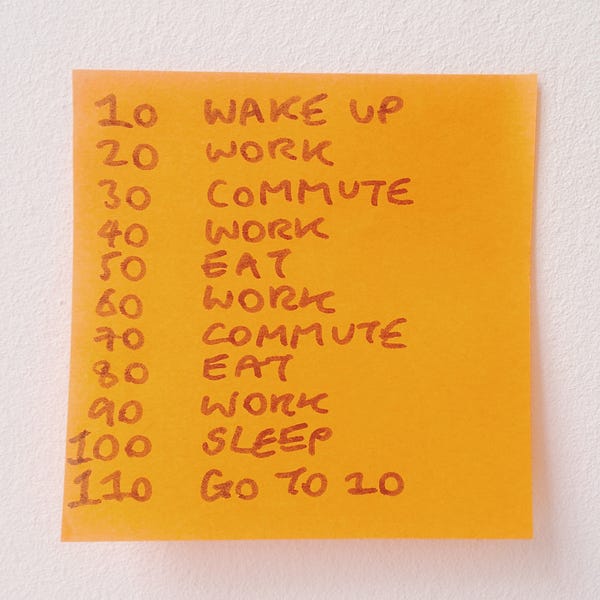 10 WAKE UP
20 WORK
30 COMMUTE
40 WORK
50 EAT
60 WORK
70 COMMUTE
80 EAT
90 WORK
100 SLEEP
110 GO TO 10